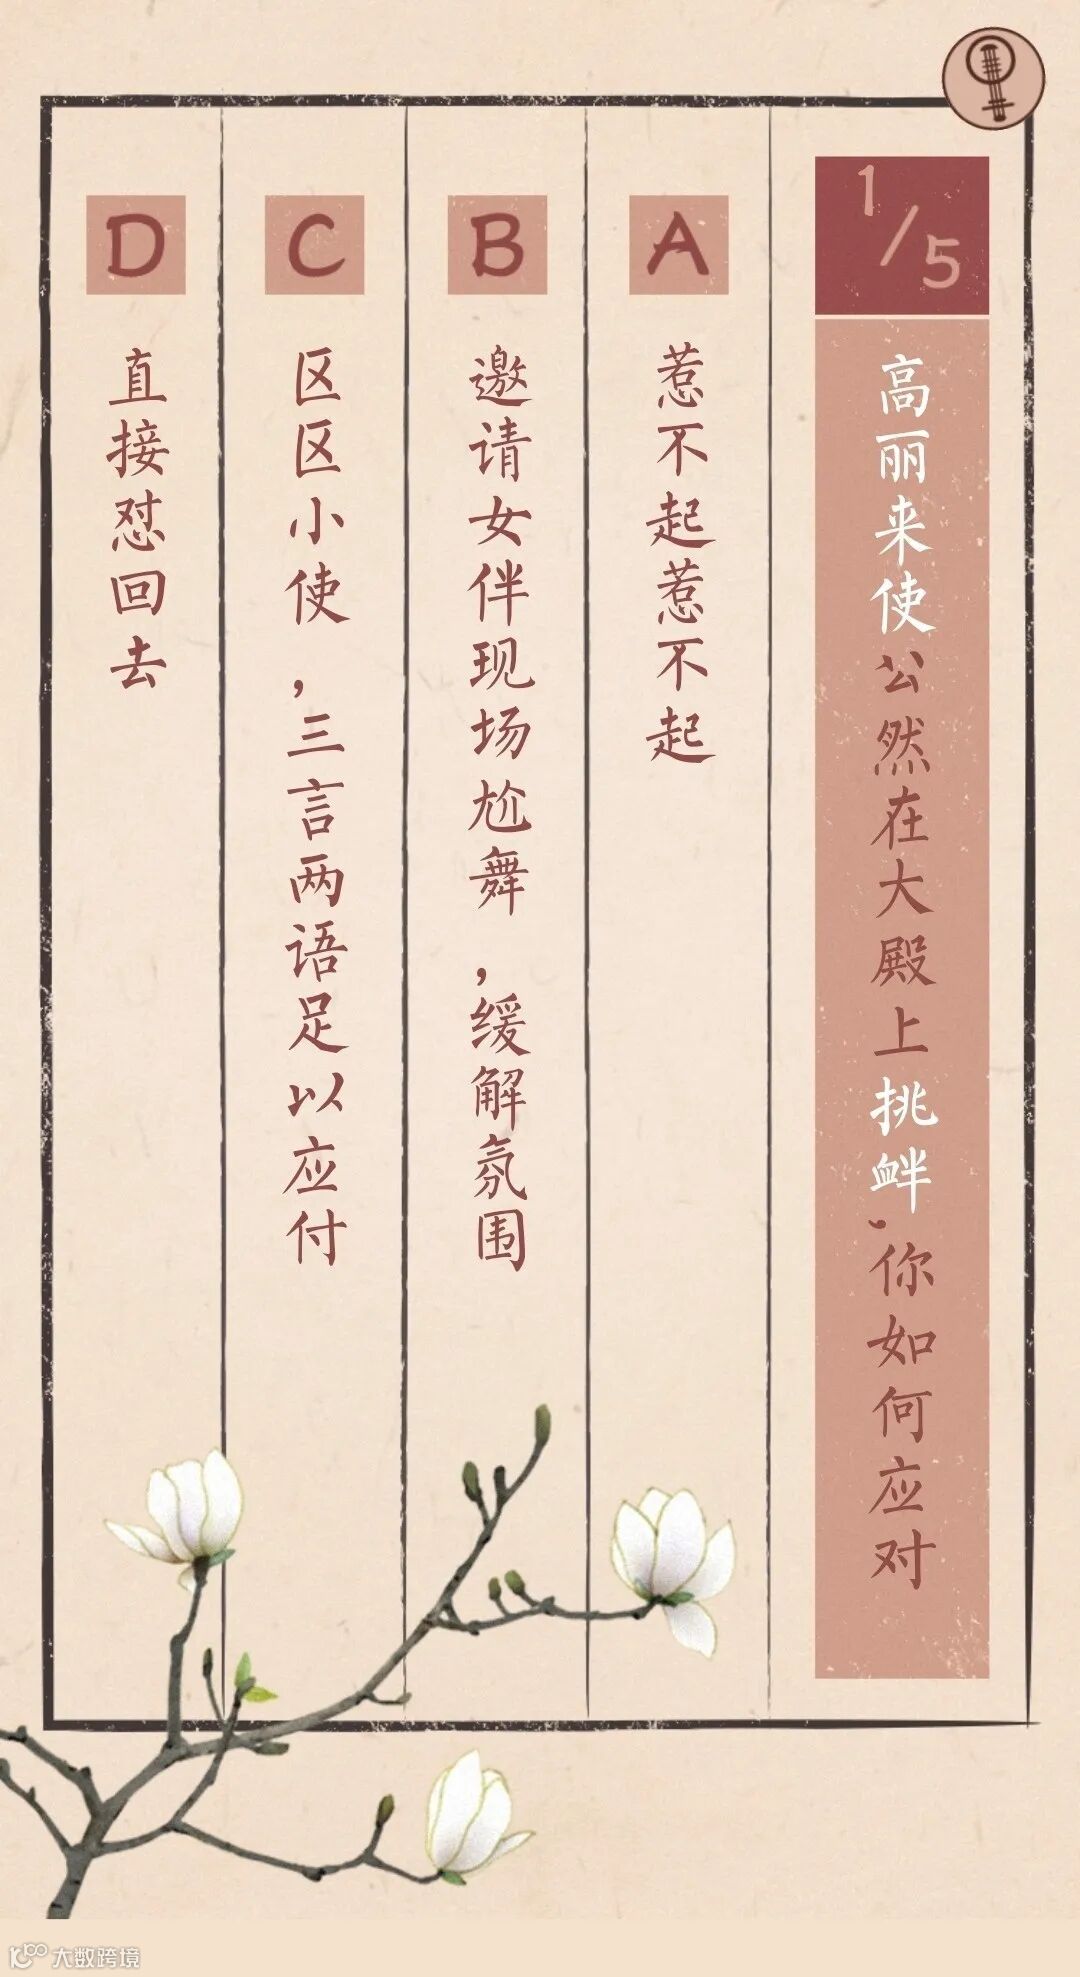 1/5
高丽来使公然在大殿上挑衅,你如何应对
A
惹不起惹不起
B
邀请女伴现场尬舞,缓解氛围
C
区区小使,三言两语足以应付
D
直接怼回去
大数跨境